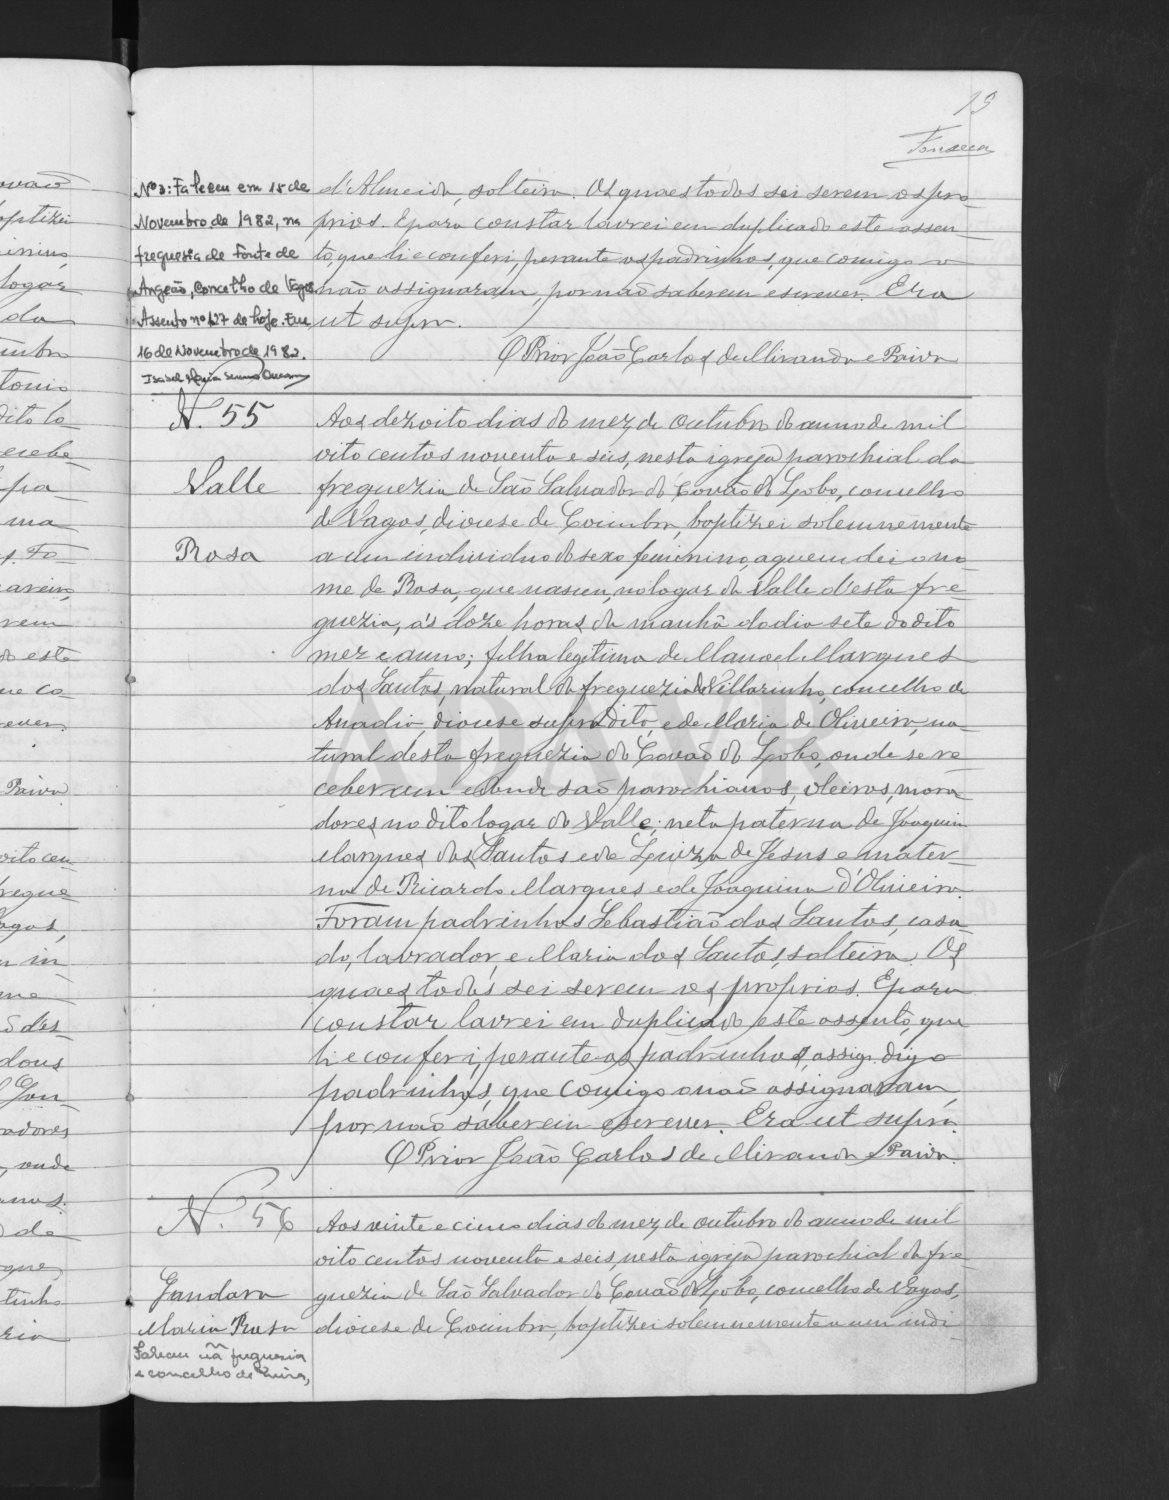 19
Fonseca
Nº 3: Faleceu em 15 de
Novembro de 1982, na
freguesia de Fonte de
Angeão, Concelho de Vagos
Assento nº 127 de hoje. Em
16 de Novembro de 1982.
d'Almeida, solteira. Os quaes todos sei serem os pro-
prios. E para constar lavrei em duplicado este assen-
to, que li e conferi, perante os padrinhos, que comigo o
não assignaram, por não saberem escrever. Era
ut supra.
O Prior João Carlos de Miranda e Paiva
N. 55
Valle
Rosa
Aos dezoito dias do mez de outubro do anno de mil
oito centos noventa e seis, nesta igreja parochial da
freguezia de São Salvador do Covão do Lobo, concelho
de Vagos, diocese de Coimbra, baptizei solemnemente
a um individuo do sexo feminino, a quem dei o no-
me de Rosa, que nasceu, no logar do Valle d'esta fre-
guezia, ás doze horas da manhã do dia sete do dito
mez e anno; filha legitima de Manoel Marques
dos Santos, natural da freguezia de Villarinho, concelho de
Anadia, diocese supradita, e de Maria de Oliveira, na-
tural desta freguezia do Covão do Lobo, onde se re-
ceberam e donde são parochianos, oleiros, mora-
dores no dito logar do Valle; neta paterna de Joaquim
Marques dos Santos e de Luiza de Jesus e mater-
na de Ricardo Marques e de Joaquina d'Oliveira.
Foram padrinhos Sebastião dos Santos, casa-
do, lavrador, e Maria dos Santos, solteira. Os
quaes todos sei serem os proprios. E para
constar lavrei em duplicado este assento, que
li e conferi, perante os padrinhos, assig. digo
padrinhos, que comigo o não assignaram,
por não saberem escrever. Era ut supra.
O Prior João Carlos de Miranda e Paiva.
N. 56
Gandara
Maria Rosa
Faleceu na freguesia
e concelho de Mira,
Aos vinte e cinco dias do mez de outubro do anno de mil
oito centos noventa e seis, nesta igreja parochial da fre-
guezia de São Salvador do Covão do Lobo, concelho de Vagos,
diocese de Coimbra, baptizei solemnemente a um indi-
ADAVR